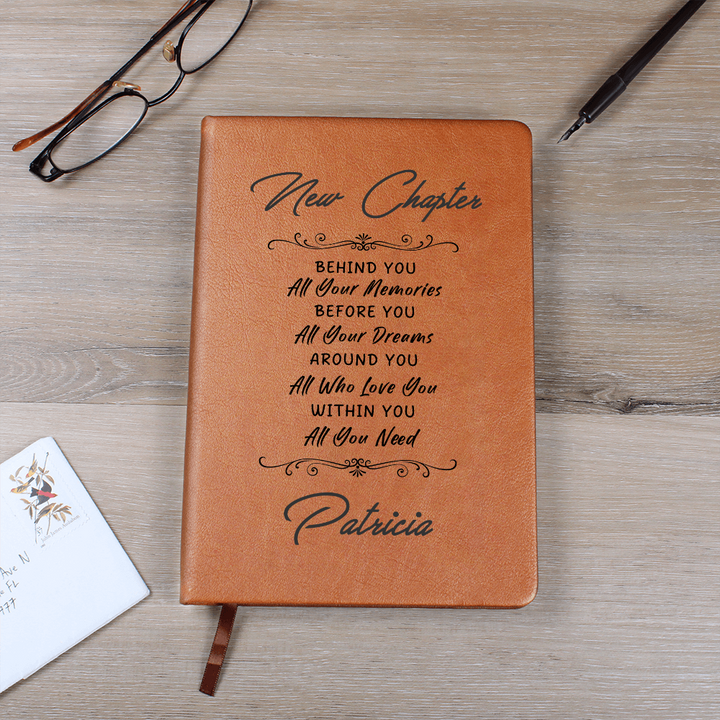 New Chapter
BEHIND YOU
All Your Memories
BEFORE YOU
All Your Dreams
AROUND YOU
All Who Love You
WITHIN YOU
All You Need
Patricia
Ave N
FL
977